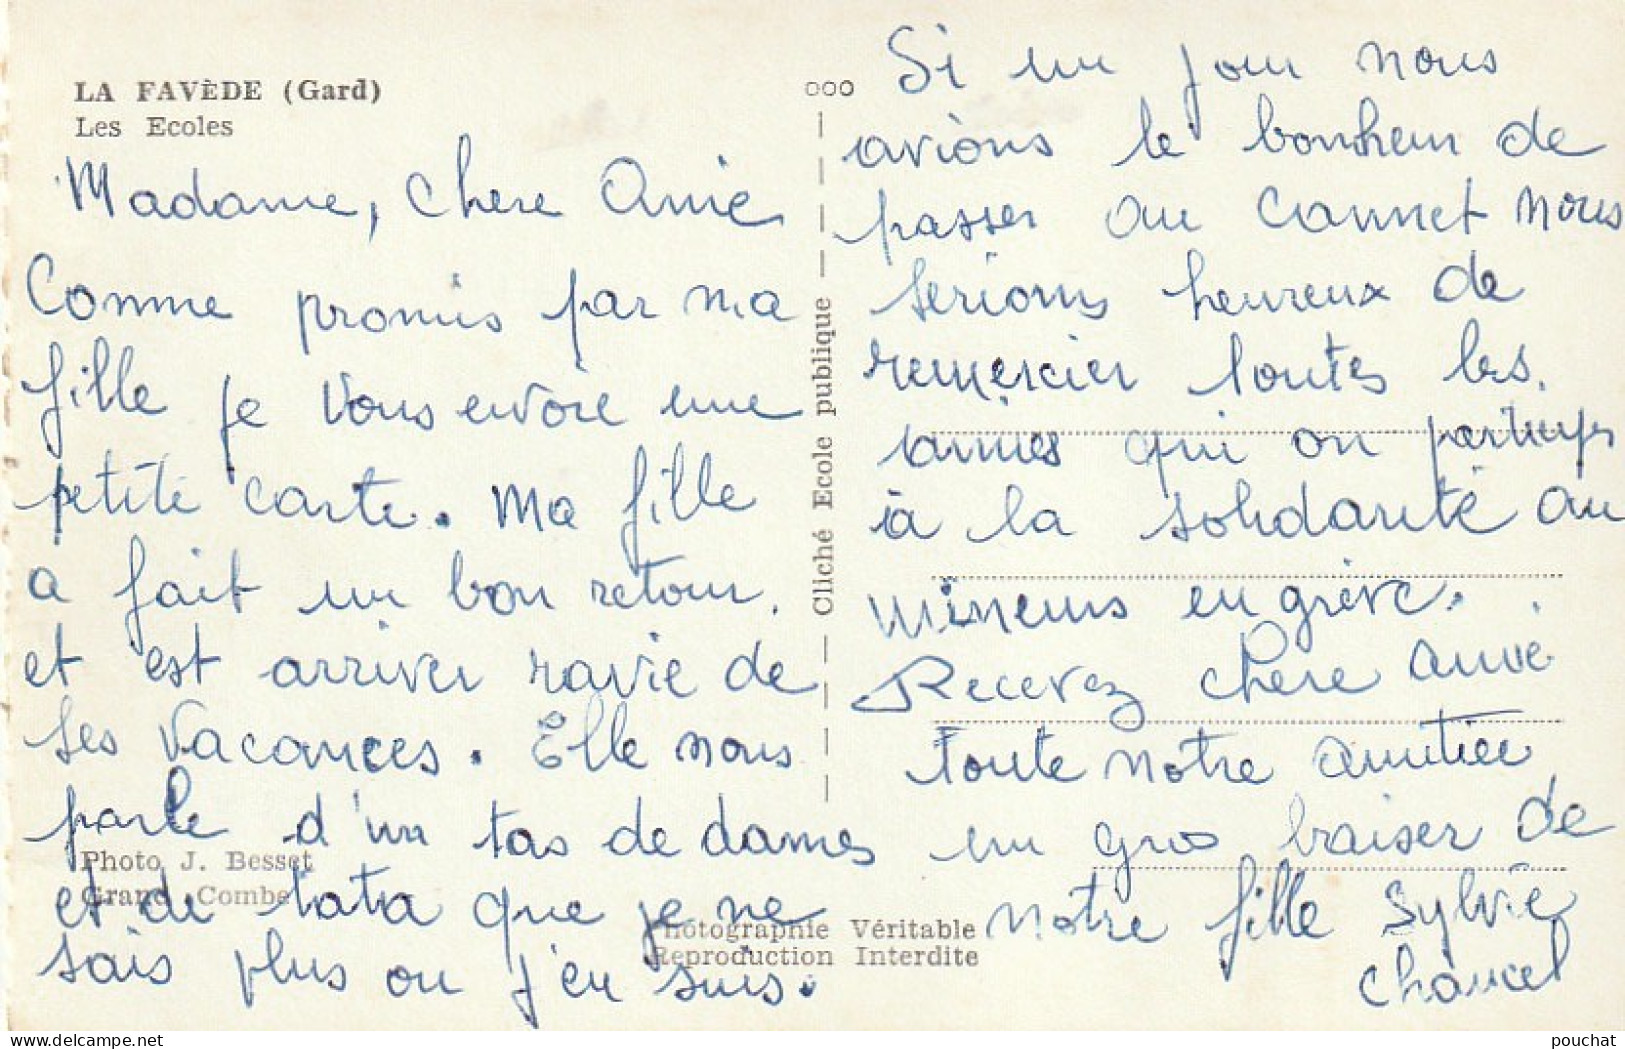 LA FAVÈDE (Gard)
Les Ecoles
Madame, chere Amie
Comme promis par ma
fille je vous envoie une
petite carte. Ma fille
a fait un bon retour.
et est arriver ravie de
ses vacances. Elle nous
parle d'un tas de dames
et de tata que je ne
sais plus ou j'en suis.
Photo J. Besset
Grand Combe
ooo
Cliché Ecole publique
Photographie Véritable
Reproduction Interdite
Si un jour nous
avions le bonheur de
passer au Cannet nous
serions heureux de
remercier toutes les
amies qui on participer
à la solidarité au
mineurs en grève.
Recevez chere amie
toute notre amitiée
un gros baiser de
notre fille Sylvie
Chancel
www.delcampe.net
pouchat